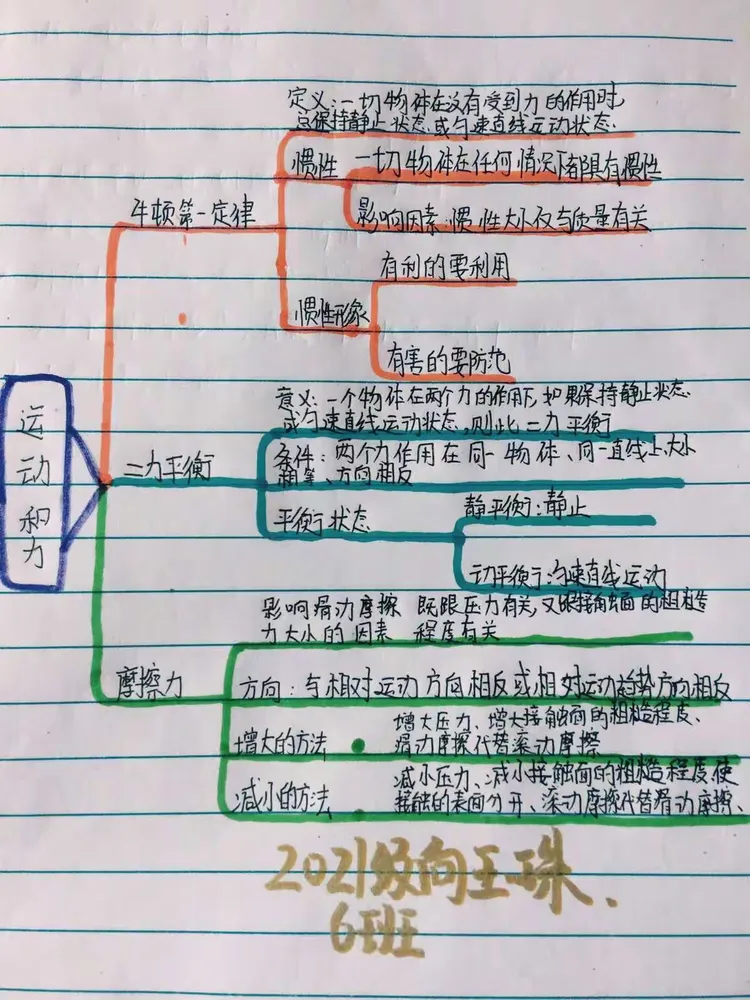 定义:一切物体在没有受到力的作用时,
总保持静止状态或匀速直线运动状态.
惯性
一切物体在任何情况下都具有惯性
牛顿第一定律
影响因素:惯性大小仅与质量有关
有利的要利用
惯性形象
有害的要防范
运动和力
意义:一个物体在两个力的作用下,如果保持静止状态
或匀速直线运动状态,则此二力平衡
二力平衡
条件:两个力作用在同一物体、同一直线上,大小
相等、方向相反
平衡状态
静平衡:静止
动平衡:匀速直线运动
影响滑动摩擦
力大小的因素
既跟压力有关,又跟接触面的粗糙
程度有关
摩擦力
方向:与相对运动方向相反或相对运动趋势方向相反
增大的方法
增大压力、增大接触面的粗糙程度、
滑动摩擦代替滚动摩擦
减小的方法
减小压力、减小接触面的粗糙程度使
接触的表面分开、滚动摩擦代替滑动摩擦、
2021级向玉珠.
6班